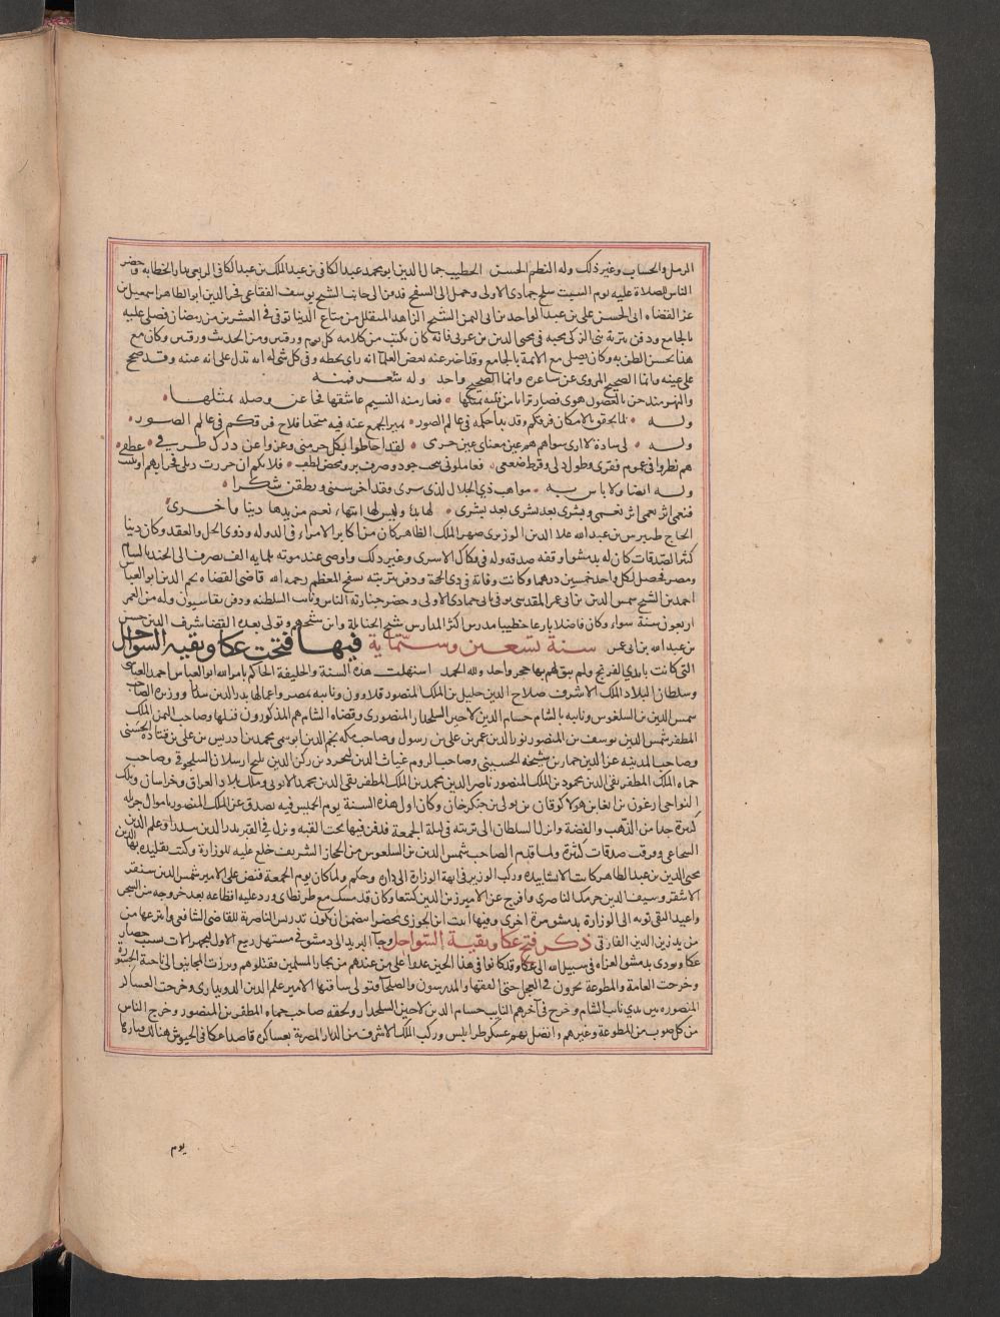 الرمل والحساب وغير ذلك وله النظم الحسن الخطيب جمال الدين ابو محمد عبد الكافي بن عبد الملك بن عبد الكافي الربعي بدار الخطابة وحضر
الناس الصلاة عليه يوم السبت سلخ جمادى الاولى وحمل الى السفح فدفن الى جانب الشيخ يوسف الفقاعي فخر الدين ابو الطاهر اسمعيل بن
عز القضاه ابى الحسن على بن عبد الواحد بن ابى اليمن الشيخ الزاهد المتقلل من متاع الدنيا توفى في العشرين من رمضان فصلى عليه
بالجامع ودفن بتربة بنى الزكي محبة في محيى الدين بن عربى فانه كان يكتب من كلامه كل يوم ورقتين ومن الحديث ورقتين وكان مع
هذا يحسن الظن به وكان يصلى مع الائمة بالجامع وقد اخبر عنه بعض العلماء انه راى بخطه وفى كل شى له اية تدل على انه عينه وقد صحح
على عينه وانما الصحيح المروى عن شاعره وانما الصحيح واحد وله شعر فمنه
والنهر مذ جن بالغصون هوى فصار ترابا من قلبه بمثلها • فغار منه النسيم عاشقها فجا عن وصله بمثلها •
وله • لما تحقق بالامكان فوقكم وقد بدا حكمه في عالم الصور • تميز الجمع عنه فيه متحدا فلاح فرقكم في عالم الصور •
وله • لى سادة لا ارى سواهم هم عين معناى عين حرى • لقد احاطوا بكل جزء منى وعزوا عن درك طرفي •
هم نظروا فى عموم فقرى وطول ذلى وفرط ضعفى • فعاملونى ببحت جود وصرف بر ومحض لطف • فلا تلم ان جررت ذيلى فخرا بهم او ثنيت عطفى
وله ايضا ولا باس به • مواهب ذي الجلال لدى تترى وقد اخرستنى ونطقن شكرا •
فنعمى اثر نعمى اثر نعمى وبشرى بعد بشرى بعد بشرى • لها بدا وليس لها انتهاء نعم مزيدها دنيا واخرى •
الحاج طيبرس بن عبد الله علا الدين الوزيرى صهر الملك الظاهر كان من اكابر الامراء فى الدوله وذوى الحل والعقد وكان دينا
كثير الصدقات كان له بدمشق اوقفه صدقه وله في فكاك الاسرى وغير ذلك واوصى عند موته بثلثمايه الف تصرف الى الجند بالشام
ومصر فحصل لكل واحد خمسين درهما وكانت وفاته فى ذى الحجة ودفن بتربته بسفح المعظم رحمه الله قاضى القضاه نجم الدين ابو العباس
احمد بن الشيخ شمس الدين بن ابى عمر المقدسى توفى ثانى جمادى الاولى وحضر جنازته الناس ونايب السلطنه ودفن بقاسيون وله من العمر
اربعون سنة سواء وكان فاضلا بارعا خطيبا مدرسا اكثر المدارس شيخ الحنابلة وابن شيخهم وتولى بعده القضا شرف الدين حسن
بن عبد الله بن ابى عمر سنة تسعين وستماية فيها فتحت عكا وبقية السواحل
التى كانت بايدي الفرنج ولم يبق لهم بها حجر واحد ولله الحمد استهلت هذه السنة والخليفة الحاكم بامر الله ابو العباس احمد العباسى
وسلطان البلاد الملك الاشرف صلاح الدين خليل بن الملك المنصور قلاوون ونايبه بمصر واعمالها بدر الدين بيدرا ووزيره الصاحب
شمس الدين بن السلعوس ونايبه بالشام حسام الدين لاجين السلحدار المنصورى وقضاه الشام هم المذكورون قبلها وصاحب اليمن الملك
المظفر شمس الدين يوسف بن المنصور نور الدين عمر بن على بن رسول وصاحب مكه نجم الدين ابو نمى محمد بن ادريس بن على بن قتاده الحسنى
وصاحب المدينه عز الدين جماز بن شيحه الحسينى وصاحب الروم غياث الدين كيخسرو بن ركن الدين قليج ارسلان السلجوقى وصاحب
حماه الملك المظفر تقى الدين محمود بن الملك المنصور ناصر الدين محمد بن الملك المظفر تقى الدين محمد الايوبى وملك بلاد العراق وخراسان وتلك
النواحى ارغون بن ابغا بن هولاكوقان بن تولى بن جنكزخان وكان اول هذه السنة يوم الخميس فيه تصدق عن الملك المنصور باموال جزيله
كثيرة جدا من الذهب والفضة وانزل السلطان الى تربته فى ليلة الجمعة فدفن فيها تحت القبه ونزل فى القبر بدر الدين بيدرا وعلم الدين
الشجاعى وفرقت صدقات كثيرة ولما قدم الصاحب شمس الدين بن السلعوس من الحجاز الشريف خلع عليه للوزارة وكتب تقليده بها
محيى الدين بن عبد الظاهر كاتب الانشا بيده وركب الوزير فى ابهة الوزارة الى داره وحكم ولما كان يوم الجمعة قبض على الامير شمس الدين سنقر
الاشقر وسيف الدين جرمك الناصرى وافرج عن الامير زين الدين كتبغا وكان قد مسك مع طرنطاى ورد عليه اقطاعه بعد خروجه من السجن
واعيد التقى توبه الى الوزارة بدمشق مرة اخرى وفيها اثبت ابن الجوزى محضرا يتضمن ان يكون تدريس الناصرية للقاضى الشافعى وانتزعها من
من يد زين الدين الفارقى ذكر فتح عكا وبقية السواحل وجآ البريد الى دمشق فى مستهل ربيع الاول لتجهيز الات بسبب حصار
عكا ونودى بدمشق الغزاه فى سبيل الله الى عكا وقد كانوا فى هذا الحين عدوا على من عندهم من تجار المسلمين فقتلوهم وبرزت المجانيق الى ناحية الجسوره
وخرجت العامة والمطوعة يجرون فى العجل حتى الفقها والمدرسون والصلحا وتولى ساقتها الامير علم الدين الدويدارى وخرجت العساكر
المنصوره بين يدي نايب الشام وخرج فى آخرهم النايب حسام الدين لاجين السلحدار ولحقه صاحب حماه المظفر بن المنصور وخرج الناس
من كل صوب من المطوعة وغيرهم واتصل بهم عسكر طرابلس وركب الملك الاشرف من الديار المصرية بعساكره قاصدا عكا فى الجيوش هنالك فنازلها
يوم